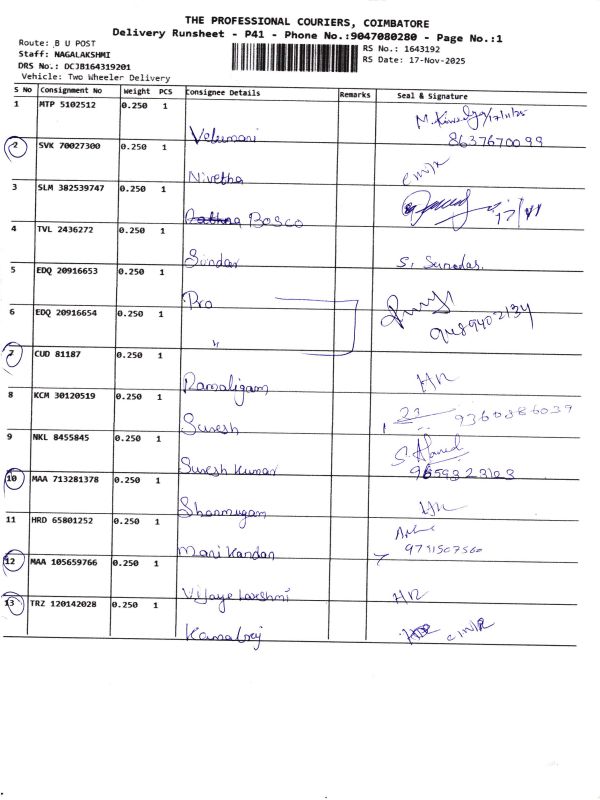 THE PROFESSIONAL COURIERS, COIMBATORE
Delivery Runsheet - P41 - Phone No.:9047080280 - Page No.:1
Route: B U POST
RS No.: 1643192
Staff: NAGALAKSHMI
RS Date: 17-Nov-2025
DRS No.: DCJB164319201
Vehicle: Two Wheeler Delivery
S No Consignment No Weight PCS Consignee Details Remarks Seal & Signature
1 MTP 5102512 0.250 1 Velumani 8637670099
2 SVK 70027300 0.250 1 Nivetha
3 SLM 382539747 0.250 1 Bosco 17/11
4 TVL 2436272 0.250 1 Sundar
5 EDQ 20916653 0.250 1 Pro
6 EDQ 20916654 0.250 1 " 9489402134
7 CUD 81187 0.250 1 Ramaligam
8 KCM 30120519 0.250 1 Suresh 9360386039
9 NKL 8455845 0.250 1 Suresh Kumar
10 MAA 713281378 0.250 1 Shanmugam
11 HRD 65801252 0.250 1 Mani Kandan
12 MAA 105659766 0.250 1 Vijaye Lakshmi
13 TRZ 120142028 0.250 1 Kamalraj